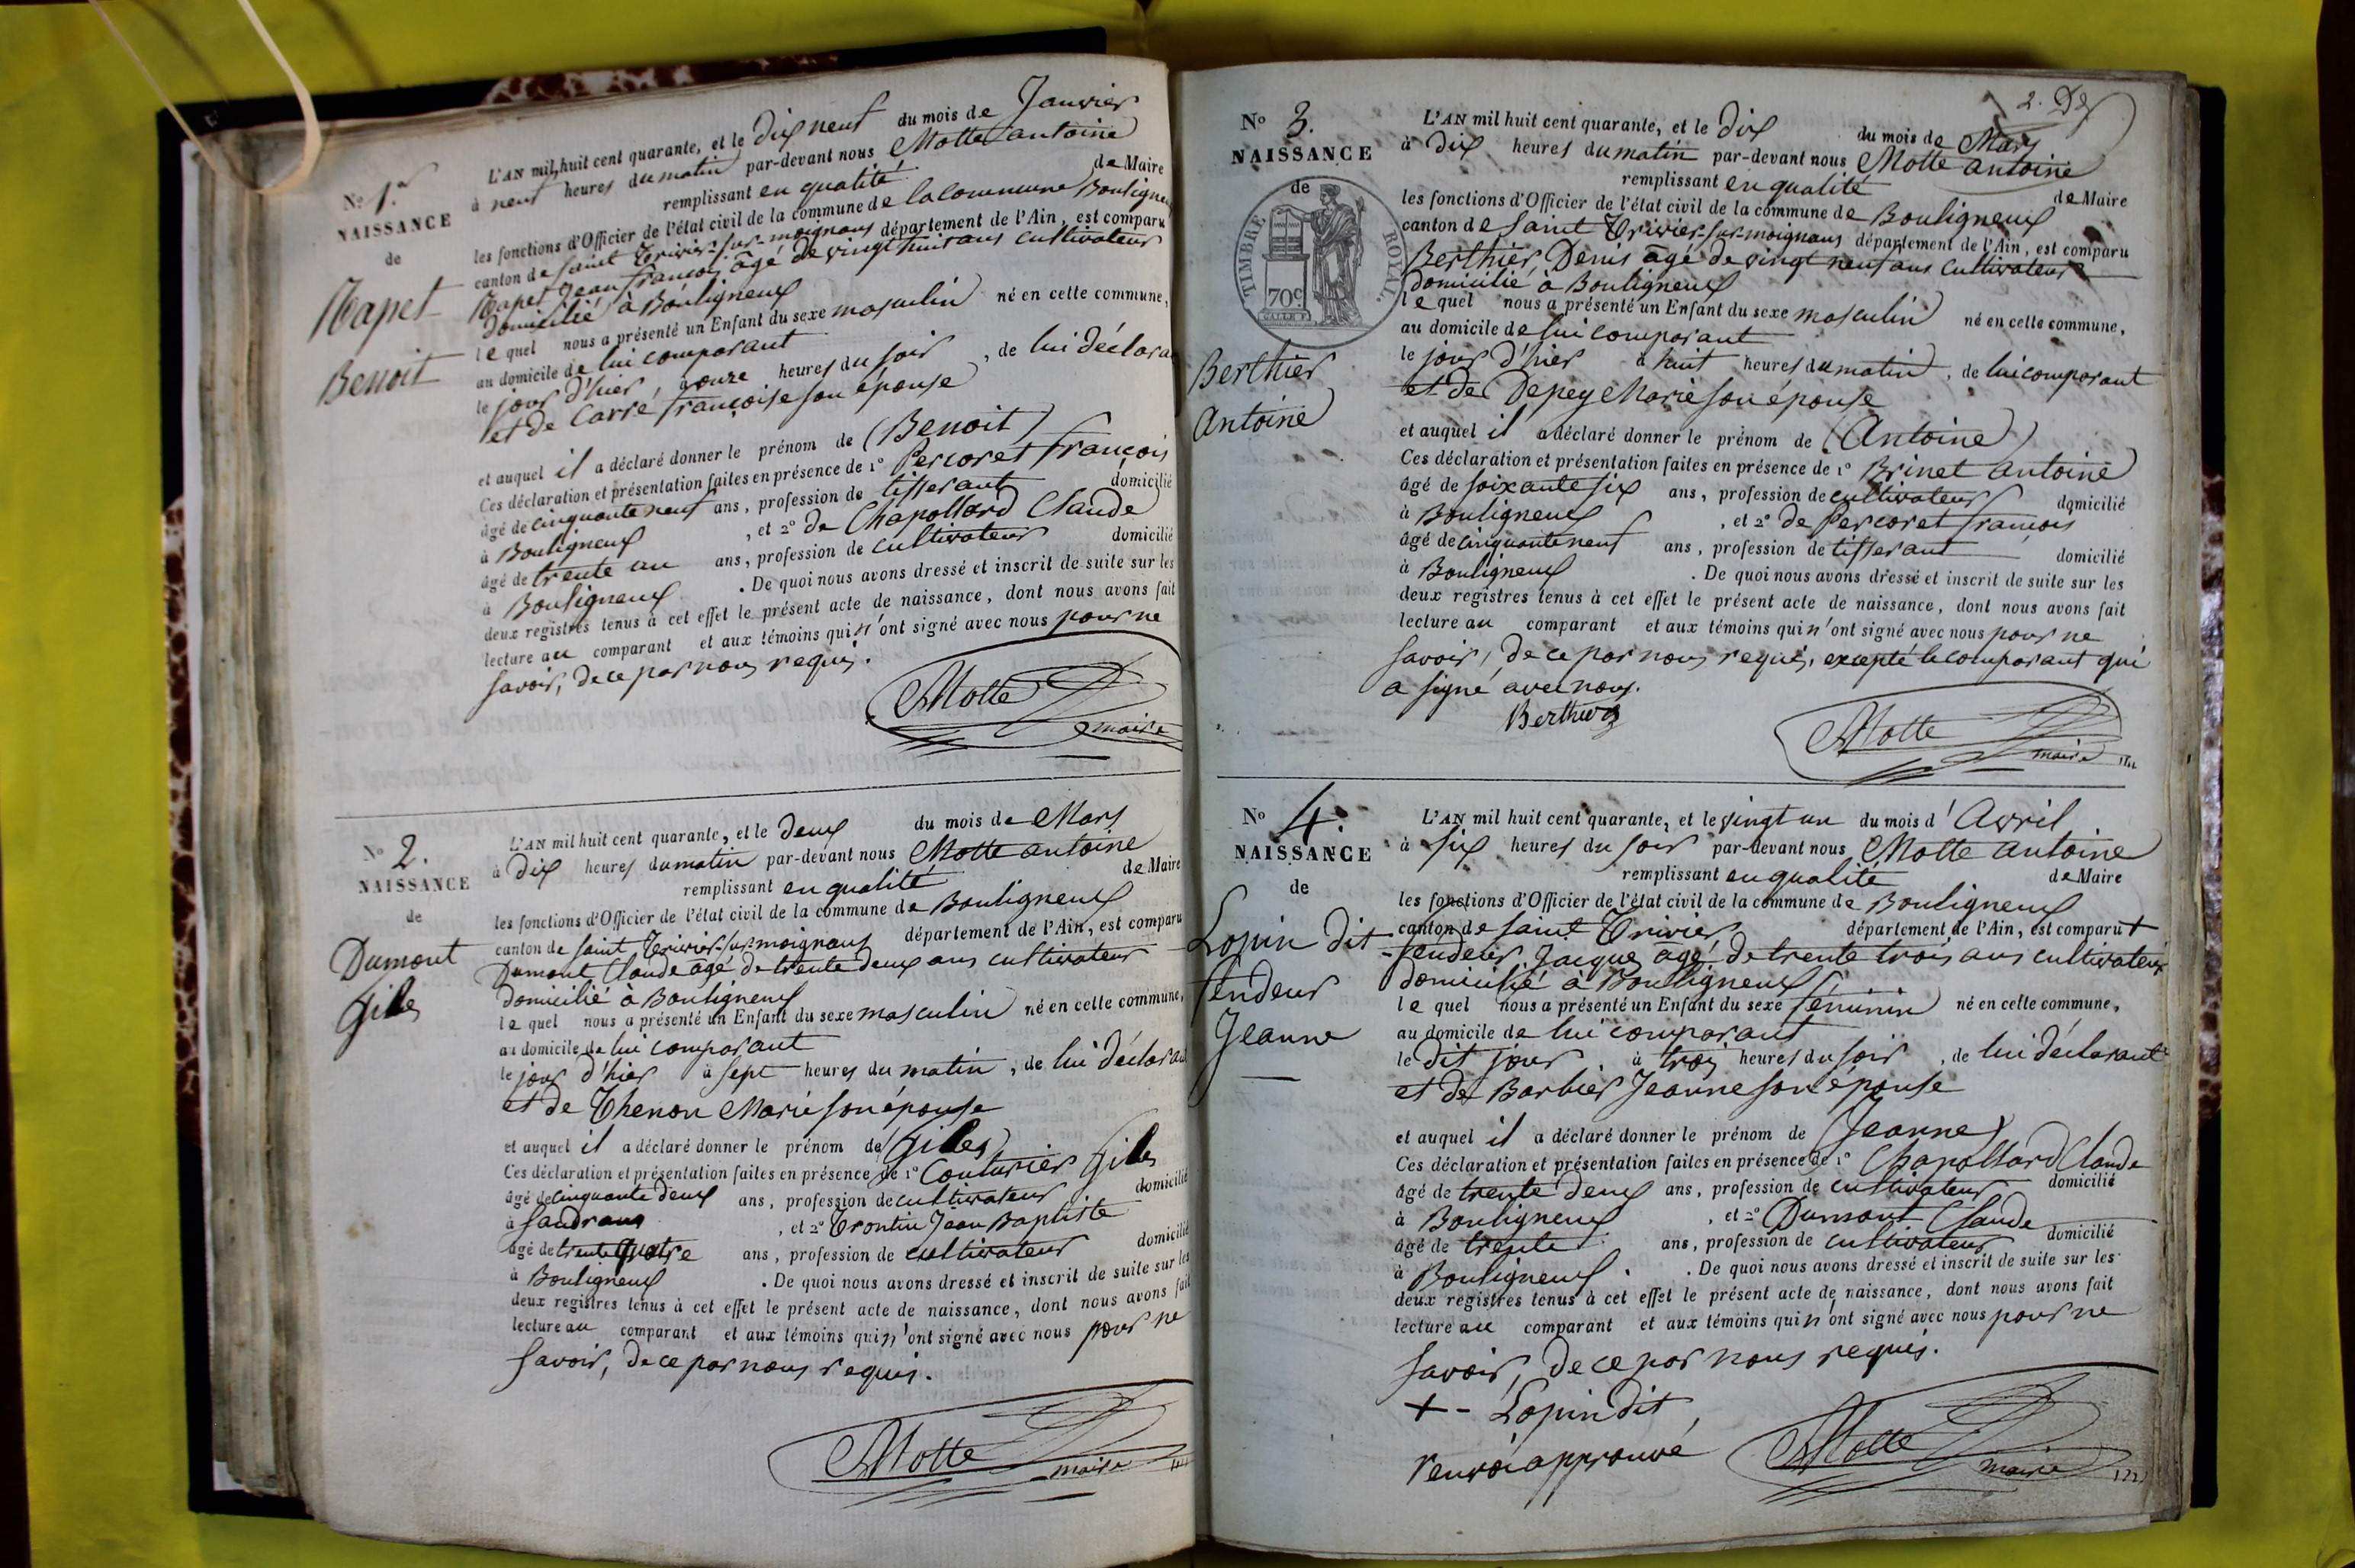 N° 1.er
NAISSANCE
de
Rapet
Benoit
L'AN mil huit cent quarante, et le dix neuf du mois de Janvier
à neuf heures du matin par-devant nous Motte antoine
remplissant en qualité de Maire
les fonctions d'Officier de l'état civil de la commune de la commune Bouligneux
canton de saint Trivier-sur-moignans département de l'Ain, est comparu
Rapet Jean françois âgé de vingt huit ans cultivateur
domicilié à Bouligneux
le quel nous a présenté un Enfant du sexe masculin né en cette commune,
au domicile de lui comparant
le jour d'hier, à onze heures du soir, de lui déclarant
et de Carré françoise son épouse
et auquel il a déclaré donner le prénom de (Benoit)
Ces déclaration et présentation faites en présence de 1° Percoret françois
âgé de cinquante neuf ans, profession de tisserant domicilié
à Bouligneux, et 2° de Chapollard Claude
âgé de trente un ans, profession de cultivateur domicilié
à Bouligneux. De quoi nous avons dressé et inscrit de suite sur les
deux registres tenus à cet effet le présent acte de naissance, dont nous avons fait
lecture au comparant et aux témoins qui n'ont signé avec nous pour ne
savoir, de ce par nous requis.
Motte
maire
N° 2.
NAISSANCE
de
Dumont
Giles
L'AN mil huit cent quarante, et le deux du mois de Mars
à dix heures du matin par-devant nous Motte antoine
remplissant en qualité de Maire
les fonctions d'Officier de l'état civil de la commune de Bouligneux
canton de saint Trivier-sur-moignans département de l'Ain, est comparu
Dumont Claude âgé de trente deux ans cultivateur
domicilié à Bouligneux
le quel nous a présenté un Enfant du sexe masculin né en cette commune,
au domicile de lui comparant
le jour d'hier à sept heures du matin, de lui déclarant
et de Thenon Marie son épouse
et auquel il a déclaré donner le prénom de (Giles)
Ces déclaration et présentation faites en présence de 1° Couturier Giles
âgé de cinquante deux ans, profession de cultivateur domicilié
à Sandrans, et 2° Trontin Jean Baptiste
âgé de trente quatre ans, profession de cultivateur domicilié
à Bouligneux. De quoi nous avons dressé et inscrit de suite sur les
deux registres tenus à cet effet le présent acte de naissance, dont nous avons fait
lecture au comparant et aux témoins qui n'ont signé avec nous pour ne
savoir, de ce par nous requis.
Motte
maire
2.
N° 3.
NAISSANCE
de
TIMBRE ROYAL.
70c.
Berthier
Antoine
L'AN mil huit cent quarante, et le dix du mois de Mars
à dix heures du matin par-devant nous Motte antoine
remplissant en qualité de Maire
les fonctions d'Officier de l'état civil de la commune de Bouligneux
canton de saint Trivier-sur-moignans département de l'Ain, est comparu
Berthier, Denis âgé de vingt neuf ans cultivateur
domicilié à Bouligneux
le quel nous a présenté un Enfant du sexe masculin né en cette commune,
au domicile de lui comparant
le jour d'hier à huit heures du matin, de lui comparant
et de Depey Marie son épouse
et auquel il a déclaré donner le prénom de (Antoine)
Ces déclaration et présentation faites en présence de 1° Brinet antoine
âgé de soixante six ans, profession de cultivateur domicilié
à Bouligneux, et 2° de Percoret françois
âgé de cinquante neuf ans, profession de tisserant domicilié
à Bouligneux. De quoi nous avons dressé et inscrit de suite sur les
deux registres tenus à cet effet le présent acte de naissance, dont nous avons fait
lecture au comparant et aux témoins qui n'ont signé avec nous pour ne
savoir, de ce par nous requis, excepté le comparant qui
a signé avec nous.
Berthier
Motte
maire
N° 4.
NAISSANCE
de
Lopin dit
fendeur
Jeanne
L'AN mil huit cent quarante, et le vingt un du mois d'Avril
à six heures du soir par-devant nous Motte antoine
remplissant en qualité de Maire
les fonctions d'Officier de l'état civil de la commune de Bouligneux
canton de saint Trivier département de l'Ain, est comparu +
fendeur Jacque âgé de trente trois ans cultivateur
domicilié à Bouligneux
le quel nous a présenté un Enfant du sexe féminin né en cette commune,
au domicile de lui comparant
le dit jour à trois heures du soir, de lui déclarant
et de Barbier Jeanne son épouse
et auquel il a déclaré donner le prénom de (Jeanne)
Ces déclaration et présentation faites en présence de 1° Chapollard Claude
âgé de trente deux ans, profession de cultivateur domicilié
à Bouligneux, et 2° Dumont Claude
âgé de trente ans, profession de cultivateur domicilié
à Bouligneux. De quoi nous avons dressé et inscrit de suite sur les
deux registres tenus à cet effet le présent acte de naissance, dont nous avons fait
lecture au comparant et aux témoins qui n'ont signé avec nous pour ne
savoir, de ce par nous requis.
+ - Lopin dit,
renvoi approuvé
Motte
maire